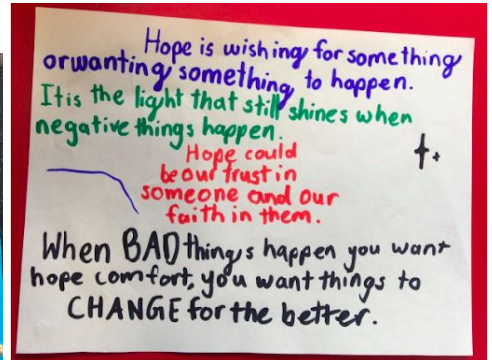 Hope is wishing for something
or wanting something to happen.
It is the light that still shines when
negative things happen.
Hope could
be our trust in
someone and our
faith in them.
When BAD things happen you want
hope comfort, you want things to
CHANGE for the better.